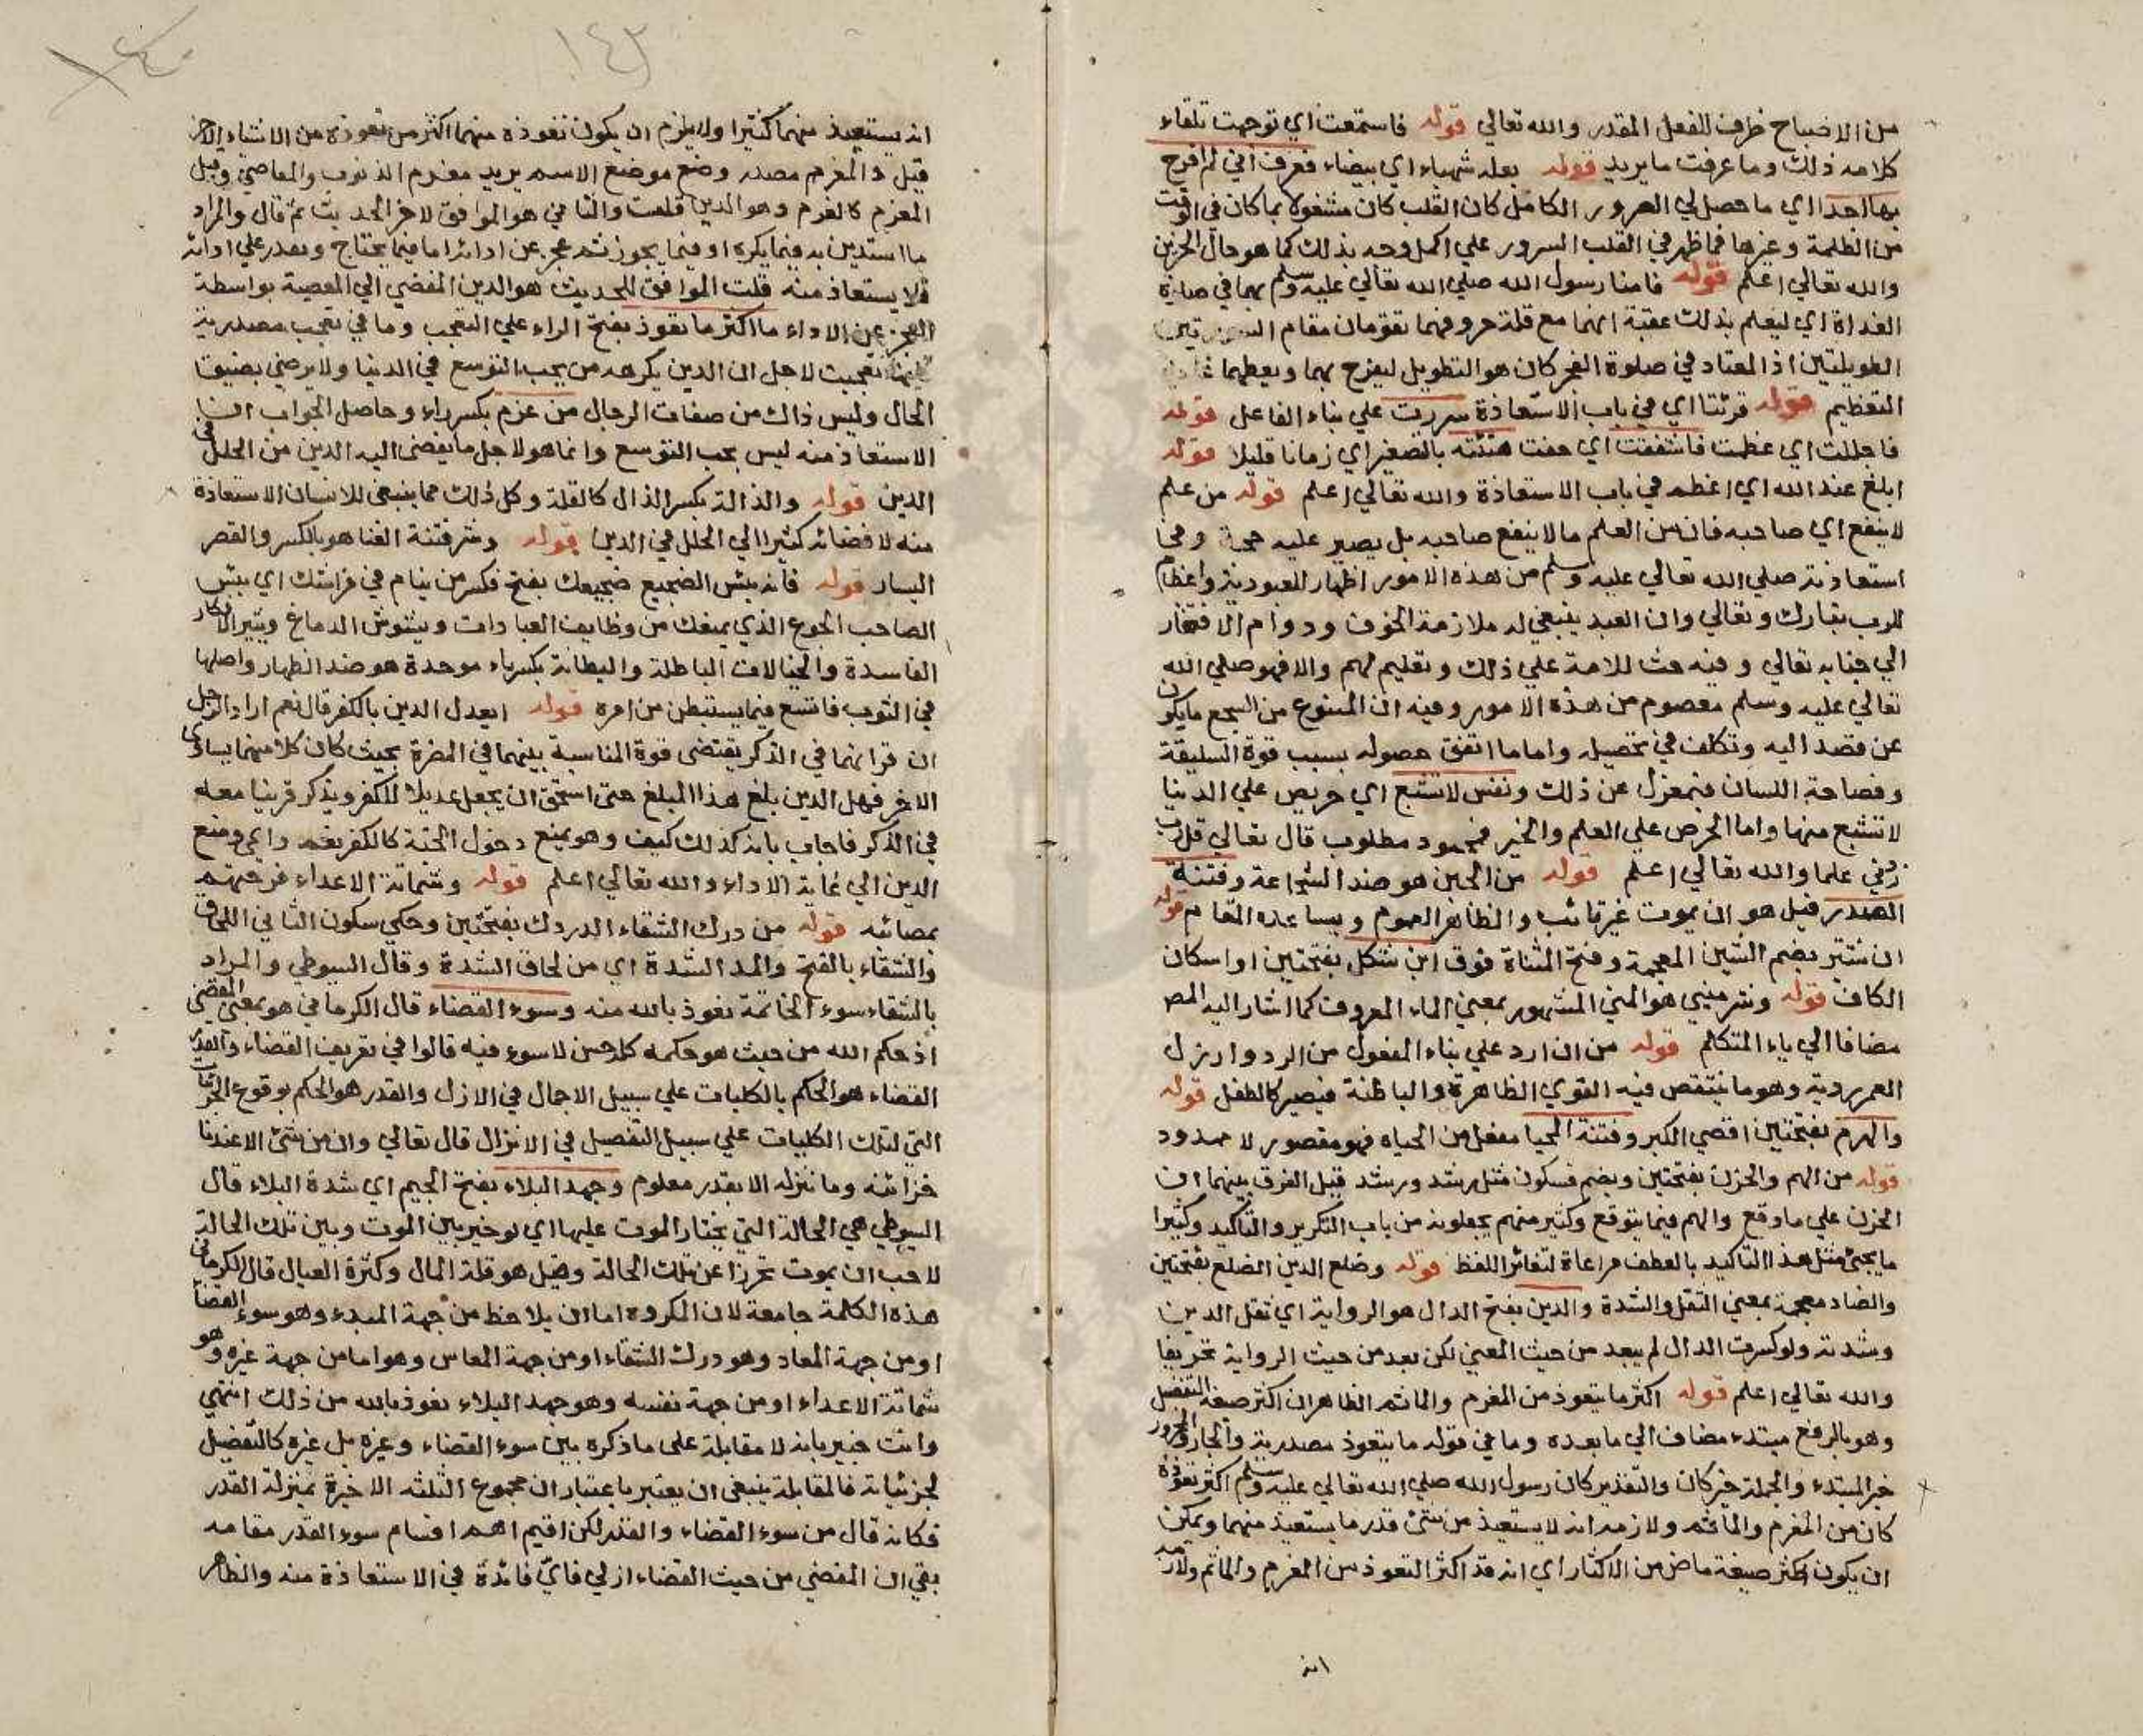 من الاصباح ظرف للفعل المقدر والله تعالي قوله فاستمعت اي توجهت تلقاء
كلامه ذلك وما عرفت ما يريد قوله بغلة شهباء اي بيضاء فعرف اني لم افرح
بها احدا اي ما حصل لي السرور الكامل كان القلب كان مشغولا بما كان في الوقت
من الظلمة وغيرها فما ظهر في القلب السرور علي اكمل وجه بذلك كما هو حال الحزين
والله تعالي اعلم قوله فامنا رسول الله صلي الله تعالي عليه وسلم بهما في صلاة
الغداة اي ليعلم بذلك عقبة انهما مع قلة حروفهما تقومان مقام السورتين
الطويلتين اذ المعتاد في صلوة الفجر كان هو التطويل ليفرح بهما ويعظمهما غاية
التعظيم قوله قرئتا اي في باب الاستعاذة سررت علي بناء الفاعل قوله
فاجللت اي عظمت فاشفقت اي خفت هنيئة بالتصغير اي زمانا قليلا قوله
ابلغ عند الله اي اعظم في باب الاستعاذة والله تعالي اعلم قوله من علم
لا ينفع اي صاحبه فان من العلم ما لا ينفع صاحبه بل يصير عليه حجة وفي
استعاذته صلي الله تعالي عليه وسلم من هذه الامور اظهار للعبودية واعظام
للرب تبارك وتعالي وان العبد ينبغي له ملازمة الخوف ودوام الافتقار
الي جنابه تعالي وفيه حث للامة علي ذلك وتعليم لهم والا فهو صلي الله
تعالي عليه وسلم معصوم من هذه الامور وفيه ان الممنوع من السجع ما يكون
عن قصد اليه وتكلف في تحصيله واما ما اتفق حصوله بسبب قوة السليقة
وفصاحة اللسان فبمعزل عن ذلك ونفس لا تشبع اي حريص علي الدنيا
لا تشبع منها واما الحرص علي العلم والخير فمحمود مطلوب قال تعالي قل رب
زدني علما والله تعالي اعلم قوله من الجبن هو ضد الشجاعة وفتنة
الصدر قيل هو ان يموت غير تائب والظاهر العموم ويساعده المقام قوله
ان شتير بضم الشين المعجمة وفتح المثناة فوق ابن شكل بفتحتين او اسكان
الكاف قوله وشر منيي هو المني المشهور بمعني الماء المعروف كما اشار اليه المص
مضافا الي ياء المتكلم قوله من ان ارد علي بناء المفعول من الرد وارذل
العمر رديه وهو ما ينتقص فيه القوي الظاهرة والباطنة فيصير كالطفل قوله
والهرم بفتحتين اقصي الكبر وفتنة المحيا مفعل من الحياه فهو مقصور لا ممدود
قوله من الهم والحزن بفتحتين وبضم فسكون مثل رشد ورشد قيل الفرق بينهما ان
الحزن علي ما وقع والهم فيما يتوقع وكثير منهم يجعلونه من باب التكرير والتاكيد وكثيرا
ما يجئ مثل هذا التاكيد بالعطف مراعاة لتغاير اللفظ قوله وضلع الدين الضلع بفتحتين
والضاد معجمة بمعني الثقل والشدة والدين بفتح الدال هو الرواية اي ثقل الدين
وشدته ولو كسرت الدال لم يبعد من حيث المعني لكن بعد من حيث الرواية تحريفا
والله تعالي اعلم قوله اكثر ما يتعوذ من المغرم والماثم الظاهر ان اكثر صيغة التفضيل
وهو بالرفع مبتدء مضاف الي ما بعده وما في قوله ما يتعوذ مصدرية والجار والمجرور
خبر المبتدء والجملة خبر كان والتقدير كان رسول الله صلي الله تعالي عليه وسلم اكثر تعوذه
كان من المغرم والماثم ولازمه انه لا يستعيذ من شئ قدر ما يستعيذ منهما ويمكن
ان يكون اكثر صيغة ماض من الاكثار اي انه قد اكثر التعوذ من المغرم والماثم ولازمه
انه
١٤٣
انه يستعيذ منهما كثيرا ولا يلزم ان يكون تعوذه منهما اكثر من تعوذه من الاشياء الاخر
قيل والمغرم مصدر وضع موضع الاسم يريد مغرم الذنوب والمعاصي وقيل
المغرم كالغرم وهو الدين قلت والثاني هو الموافق لاخر الحديث ثم قال والمراد
ما استدين به فيما يكره او فيما يجوز ثم عجز عن ادائه اما فيما يحتاج ويقدر علي ادائه
فلا يستعاذ منه قلت الموافق للحديث هو الدين المفضي الي المعصية بواسطة
العجز عن الاداء ما اكثر ما تعوذ بفتح الراء علي التعجب وما في تعجب مصدرية
تعجبت لاجل ان الدين يكرهه من يحب التوسع في الدنيا ولا يرضي بضيق
الحال وليس ذاك من صفات الرجال من غرم بكسر راء وحاصل الجواب ان
الاستعاذ منه ليس بحب التوسع وانما هو لاجل ما يفضي اليه الدين من الخلل في
الدين قوله والذلة بكسر الذال كالقلة وكل ذلك مما ينبغي للانسان الاستعاذة
منه لافضائه كثيرا الي الخلل في الدين قوله وشر فتنة الغنا هو بالكسر والقصر
اليسار قوله فانه بئس الضجيع ضجيعك بفتح فكسر من ينام في فراشك اي بئس
الصاحب الجوع الذي يمنعك من وظايف العبادات ويشوش الدماغ ويثير الافكار
الفاسدة والخيالات الباطلة والبطانة بكسر باء موحدة هو ضد الظهارة واصلها
في الثوب فاتسع فيما يستبطن من امره قوله ايعدل الدين بالكفر قال نعم اراد الرجل
ان قرانهما في الذكر يقتضي قوة المناسبة بينهما في المضرة بحيث كان كلا منهما يساوي
الاخر فهل الدين بلغ هذا المبلغ حتي استحق ان يجعل عديلا للكفر ويذكر قرينا معه
في الذكر فاجاب بانه كذلك كيف وهو يمنع دخول الجنة كالكفر يعم ومنع
الدين الي غاية الاداء والله تعالي اعلم قوله وشماتة الاعداء فرحتهم
بمصائبه قوله من درك الشقاء الدرك بفتحتين وحكي سكون الثاني اللحاق
والشقاء بالفتح والمد الشدة اي من لحاق الشدة وقال السيوطي والمراد
بالشقاء سوء الخاتمة نعوذ بالله منه وسوء القضاء قال الكرماني هو بمعني المقضي
اذ حكم الله من حيث هو حكمه كله حسن لا سوء فيه قالوا في تعريف القضاء والقدر
القضاء هو الحكم بالكليات علي سبيل الاجمال في الازل والقدر هو الحكم بوقوع الجزئيات
التي لتلك الكليات علي سبيل التفصيل في الانزال قال تعالي وان من شئ الا عندنا
خزائنه وما ننزله الا بقدر معلوم وجهد البلاء بفتح الجيم اي شدة البلاء قال
السيوطي هي الحالة التي يختار الموت عليها اي لو خير بين الموت وبين تلك الحالة
لاحب ان يموت تحرزا عن تلك الحالة وقيل هو قلة المال وكثرة العيال قال الكرماني
هذه الكلمة جامعة لان المكروه اما ان يلاحظ من جهة المبدء وهو سوء القضاء
او من جهة المعاد وهو درك الشقاء او من جهة المعاش وهو اما من جهة غيره وهو
شماتة الاعداء او من جهة نفسه وهو جهد البلاء نعوذ بالله من ذلك انتهي
وانت خبير بانه لا مقابلة علي ما ذكره بين سوء القضاء وغيره بل غيره كالتفصيل
لجزئياته فالمقابلة ينبغي ان يعتبر باعتبار ان مجموع الثلثه الاخيرة بمنزلة القدر
فكانه قال من سوء القضاء والقدر لكن اقيم اهم اقسام سوء القدر مقامه
بقي ان المقضي من حيث القضاء ازلي فاي فائدة في الاستعاذة منه والظاهر